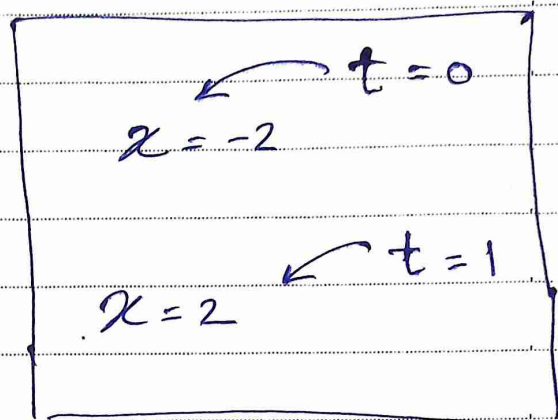 t = 0
x = -2
t = 1
x = 2